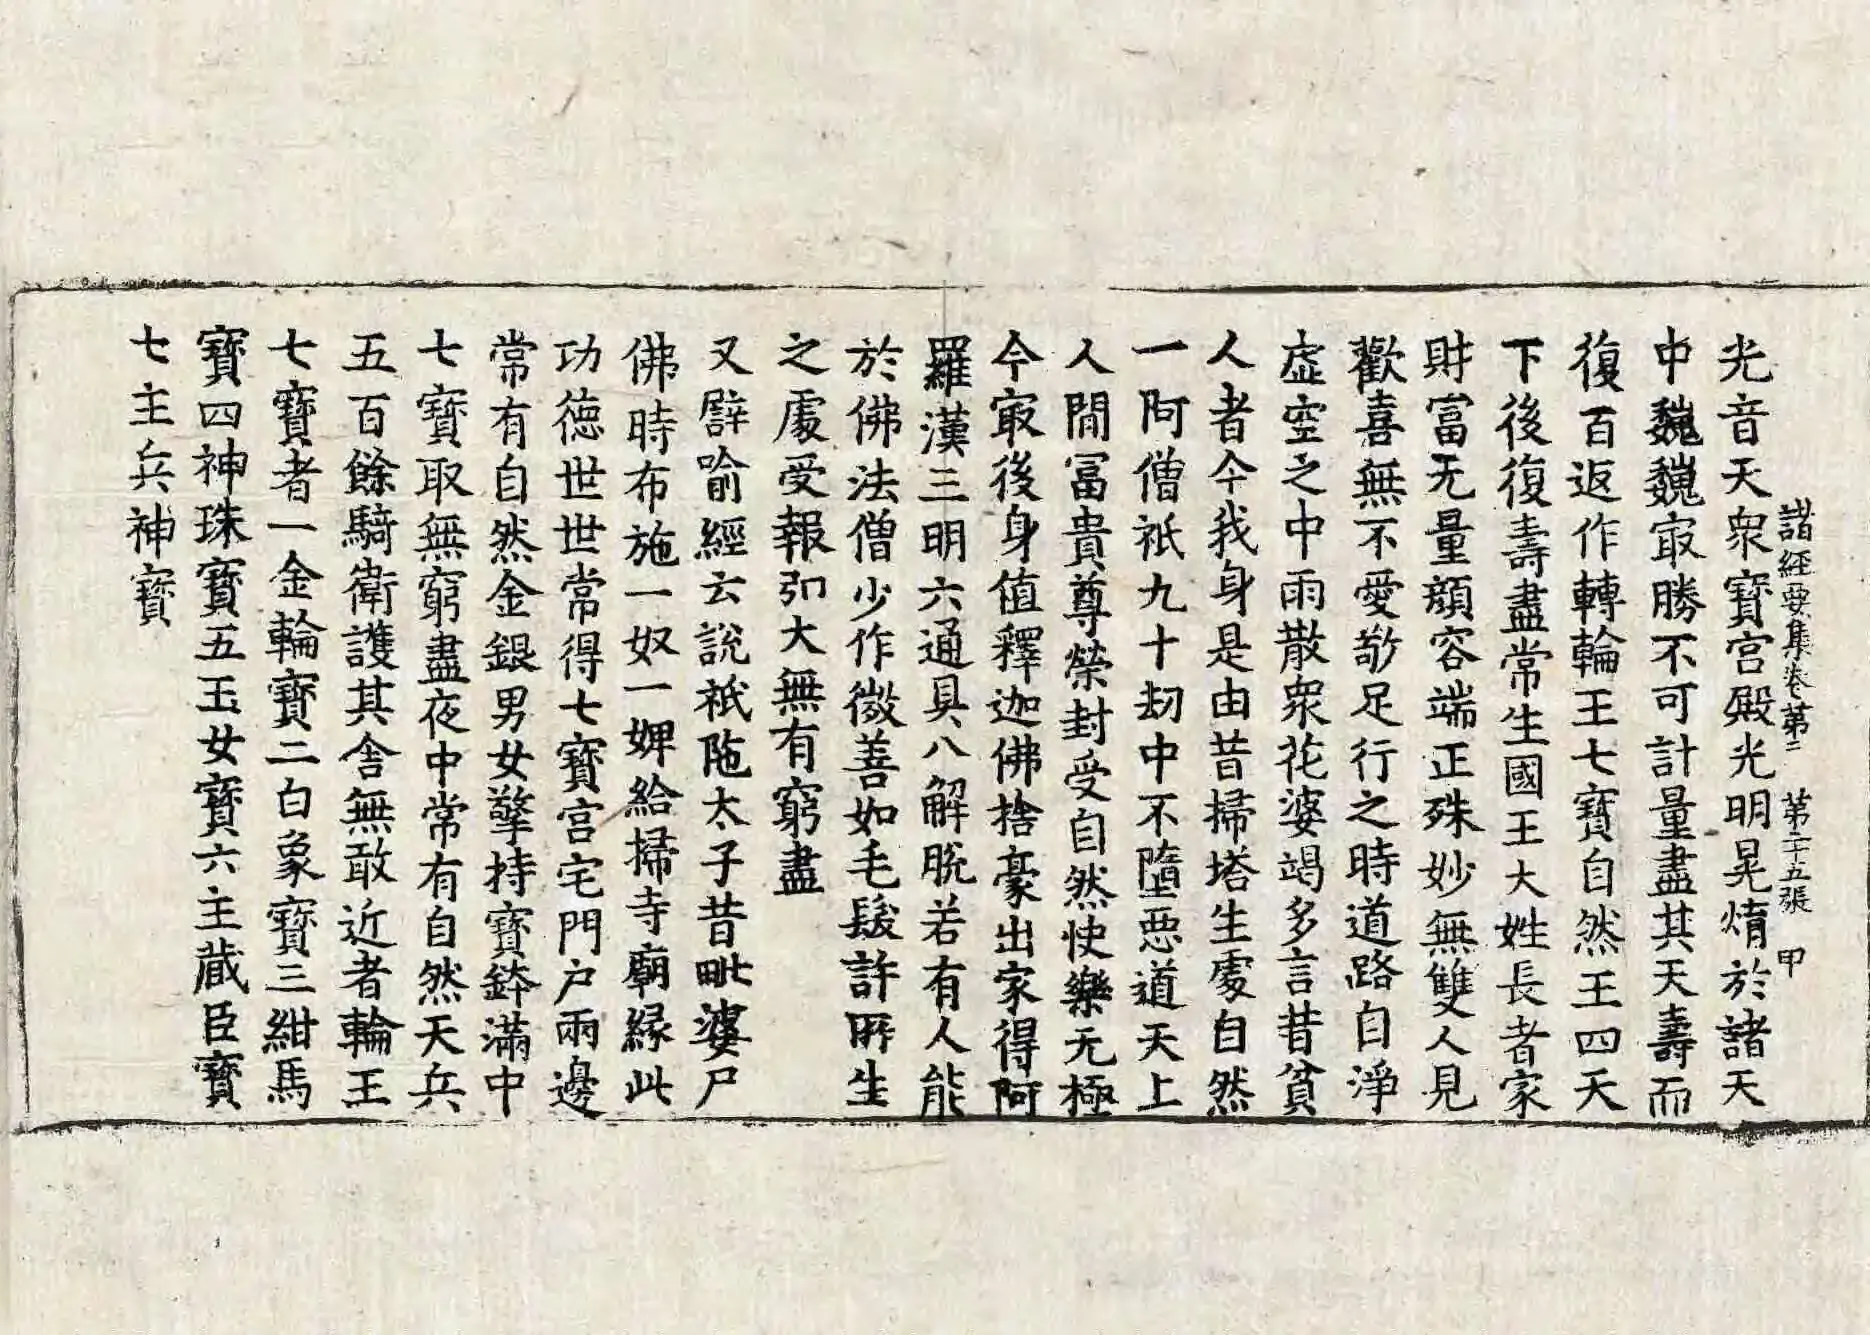 諸經要集卷第二 第二十五張 甲
光音天衆寶宮殿光明晃焴於諸天
中巍巍㝡勝不可計量盡其天壽而
復百返作轉輪王七寶自然王四天
下後復壽盡常生國王大姓長者家
財富无量顔容端正殊妙無雙人見
歡喜無不愛敬足行之時道路自淨
虚空之中雨散衆花婆竭多言昔貧
人者今我身是由昔掃塔生處自然
一阿僧祇九十劫中不墮惡道天上
人間冨貴尊榮封受自然快樂无極
今㝡後身值釋迦佛捨豪出家得阿
羅漢三明六通具八解脫若有人能
於佛法僧少作微善如毛髮許所生
之處受報弘大無有窮盡
又譬喻經云說祇陁太子昔毗婆尸
佛時布施一奴一婢給掃寺廟縁此
功德世世常得七寶宮宅門戶兩邊
常有自然金銀男女擎持寶鉢滿中
七寶取無窮盡夜中常有自然天兵
五百餘騎衛護其舍無敢近者輪王
七寶者一金輪寶二白象寶三紺馬
寶四神珠寶五玉女寶六主蔵臣寶
七主兵神寶